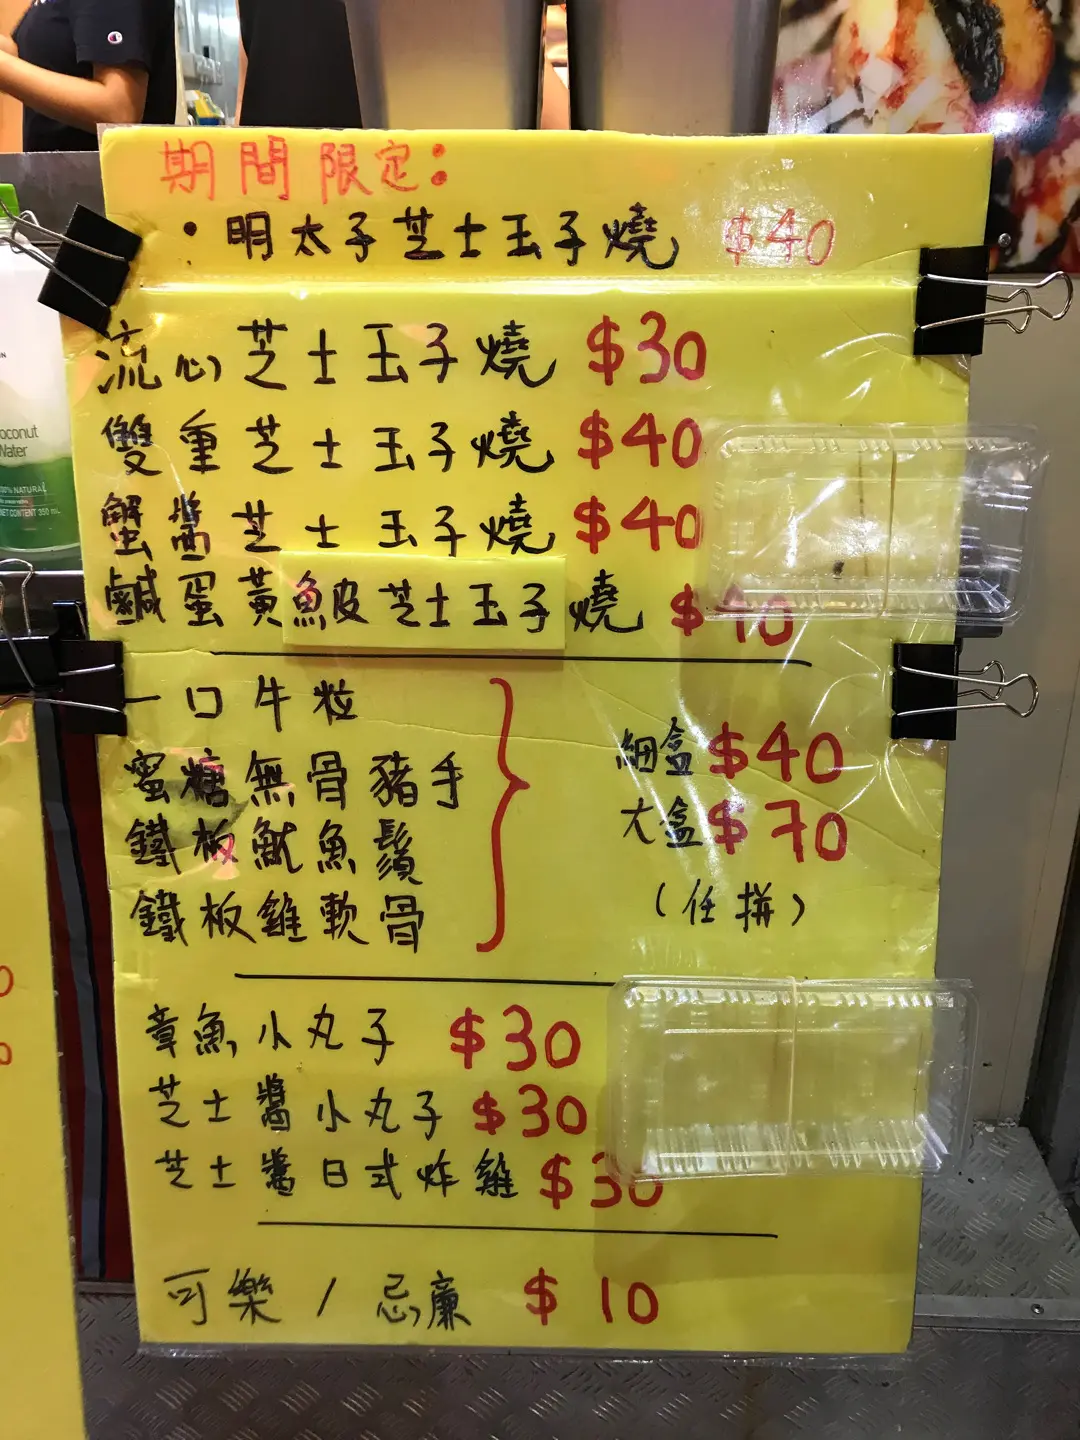 期間限定:
・明太子芝士玉子燒 $40
流心芝士玉子燒 $30
雙重芝士玉子燒 $40
蟹醬芝士玉子燒 $40
鹹蛋黃魚皮芝士玉子燒 $40
一口牛粒
蜜糖無骨豬手
鐵板魷魚鬚
鐵板雞軟骨
細盒 $40
大盒 $70
(任拼)
章魚小丸子 $30
芝士醬小丸子 $30
芝士醬日式炸雞 $30
可樂 / 忌廉 $10
oconut
Water
100% NATURAL
NET CONTENT 350 mL